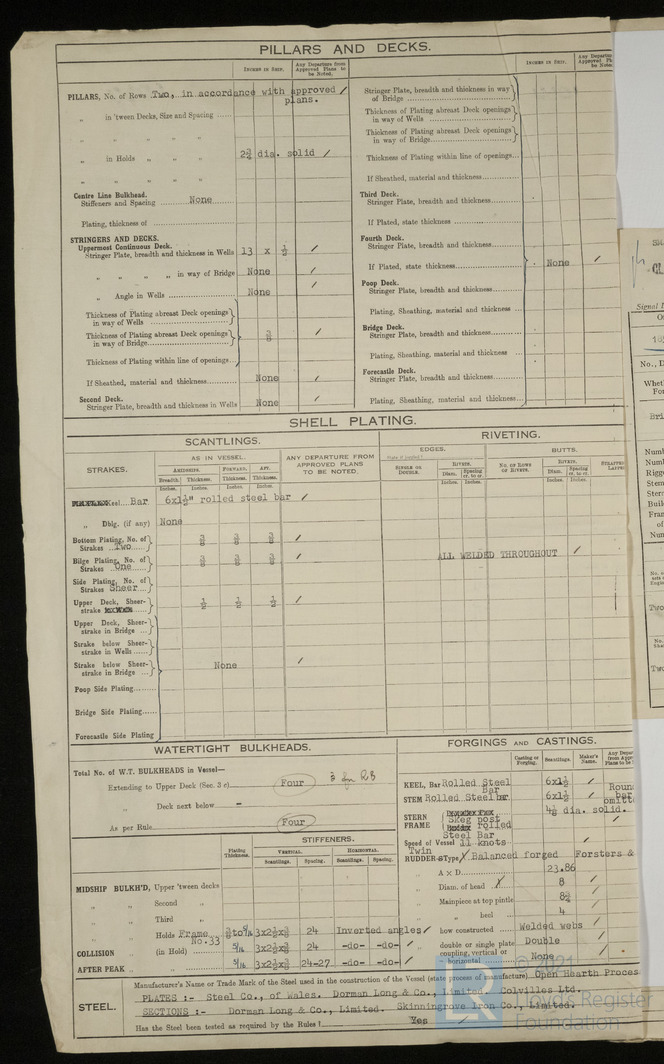 PILLARS AND DECKS.
INCHES IN SHIP.
Any Departure from Approved Plans to be Noted.
PILLARS, No. of Rows Two, in accordance with approved / plans.
„ in 'tween Decks, Size and Spacing ......
„ „ „ „
„ in Holds „ „ 2¾ dia. solid /
„ „ „ „
Centre Line Bulkhead.
Stiffeners and Spacing ........ None
Plating, thickness of ........
STRINGERS AND DECKS.
Uppermost Continuous Deck.
Stringer Plate, breadth and thickness in Wells 13 x ½ /
„ „ „ „ in way of Bridge None /
„ Angle in Wells ........ None /
Thickness of Plating abreast Deck openings in way of Wells ........
Thickness of Plating abreast Deck openings in way of Bridge........ ⅜ /
Thickness of Plating within line of openings...
If Sheathed, material and thickness........ None /
Second Deck.
Stringer Plate, breadth and thickness in Wells None /
INCHES IN SHIP.
Stringer Plate, breadth and thickness in way of Bridge ........
Thickness of Plating abreast Deck openings in way of Wells ........
Thickness of Plating abreast Deck openings in way of Bridge........
Thickness of Plating within line of openings...
If Sheathed, material and thickness........
Third Deck.
Stringer Plate, breadth and thickness........
If Plated, state thickness ........
Fourth Deck.
Stringer Plate, breadth and thickness........
If Plated, state thickness........ None /
Poop Deck.
Stringer Plate, breadth and thickness........
Plating, Sheathing, material and thickness ...
Bridge Deck.
Stringer Plate, breadth and thickness........
Plating, Sheathing, material and thickness ...
Forecastle Deck.
Stringer Plate, breadth and thickness........
Plating, Sheathing, material and thickness...
SHELL PLATING.
SCANTLINGS.
RIVETING.
STRAKES.
AS IN VESSEL.
AMIDSHIPS. FORWARD. AFT.
Breadth. Thickness. Thickness. Thickness.
Inches. Inches. Inches. Inches.
ANY DEPARTURE FROM APPROVED PLANS TO BE NOTED.
EDGES.
SINGLE OR DOUBLE.
RIVETS.
Diam. Spacing cr. to cr.
Inches. Inches.
BUTTS.
No. OF ROWS OF RIVETS.
RIVETS.
Diam. Spacing cr. to cr.
Inches. Inches.
Keel... Bar 6x1½" rolled steel bar /
„ Dblg. (if any) None
Bottom Plating, No. of Strakes Two ⅜ ⅜ ⅜ /
Bilge Plating, No. of Strakes One ⅜ ⅜ ⅜ / ALL WELDED THROUGHOUT /
Side Plating, No. of Strakes Sheer
Upper Deck, Sheer-strake ½ ½ ½ /
Upper Deck, Sheer-strake in Bridge ...
Strake below Sheer-strake in Wells ......
Strake below Sheer-strake in Bridge ... None /
Poop Side Plating........
Bridge Side Plating......
Forecastle Side Plating
WATERTIGHT BULKHEADS.
Total No. of W.T. BULKHEADS in Vessel—
Extending to Upper Deck (Sec. 3 c)........ Four
„ Deck next below ..... -
As per Rule........ Four
Plating Thickness.
STIFFENERS.
VERTICAL. HORIZONTAL.
Scantlings. Spacing. Scantlings. Spacing.
MIDSHIP BULKH'D, Upper 'tween decks
„ „ Second „
„ „ Third „
„ „ Holds Frame No.33 3x2½x⅜ 24 Inverted angles /
COLLISION „ (in Hold) ...... 5/16 3x2½x⅜ 24 -do- -do- /
AFTER PEAK „ „ ...... 5/16 3x2½x⅜ 24-27 -do- -do- /
FORGINGS AND CASTINGS.
Casting or Forging. Scantlings. Maker's Name.
KEEL, Bar Rolled Steel Bar 6x1½ /
STEM Rolled Steel bar 6x1½ /
STERN FRAME Skeg post 4⅛ dia. solid.
rolled Steel Bar /
Speed of Vessel 11 knots
Twin RUDDER-s Type Balanced forged Forsters &
„ A x D........ 23.86
„ Diam. of head ...... 8 /
„ Mainpiece at top pintle 8¾ /
„ „ heel .. 4
„ how constructed ...... Welded webs /
„ double or single plate Double
„ coupling, vertical or horizontal ...... None
STEEL.
Manufacturer's Name or Trade Mark of the Steel used in the construction of the Vessel (state process of manufacture). Open Hearth Proces
PLATES :- Steel Co., of Wales. Dorman Long & Co., Limited. Colvilles Ltd.
SECTIONS :- Dorman Long & Co., Limited. Skinningrove Iron Co., Limited.
Has the Steel been tested as required by the Rules ? ........ Yes /
© 2021
Lloyd's Register
Foundation